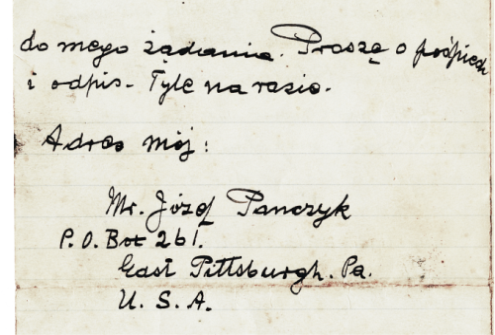 do mego żądania. Proszę o pośpiech
i odpis. Tyle na razie.
Adres mój:
Mr. Józef Panczyk
P.O. Box 261.
East Pittsburgh. Pa.
U. S. A.